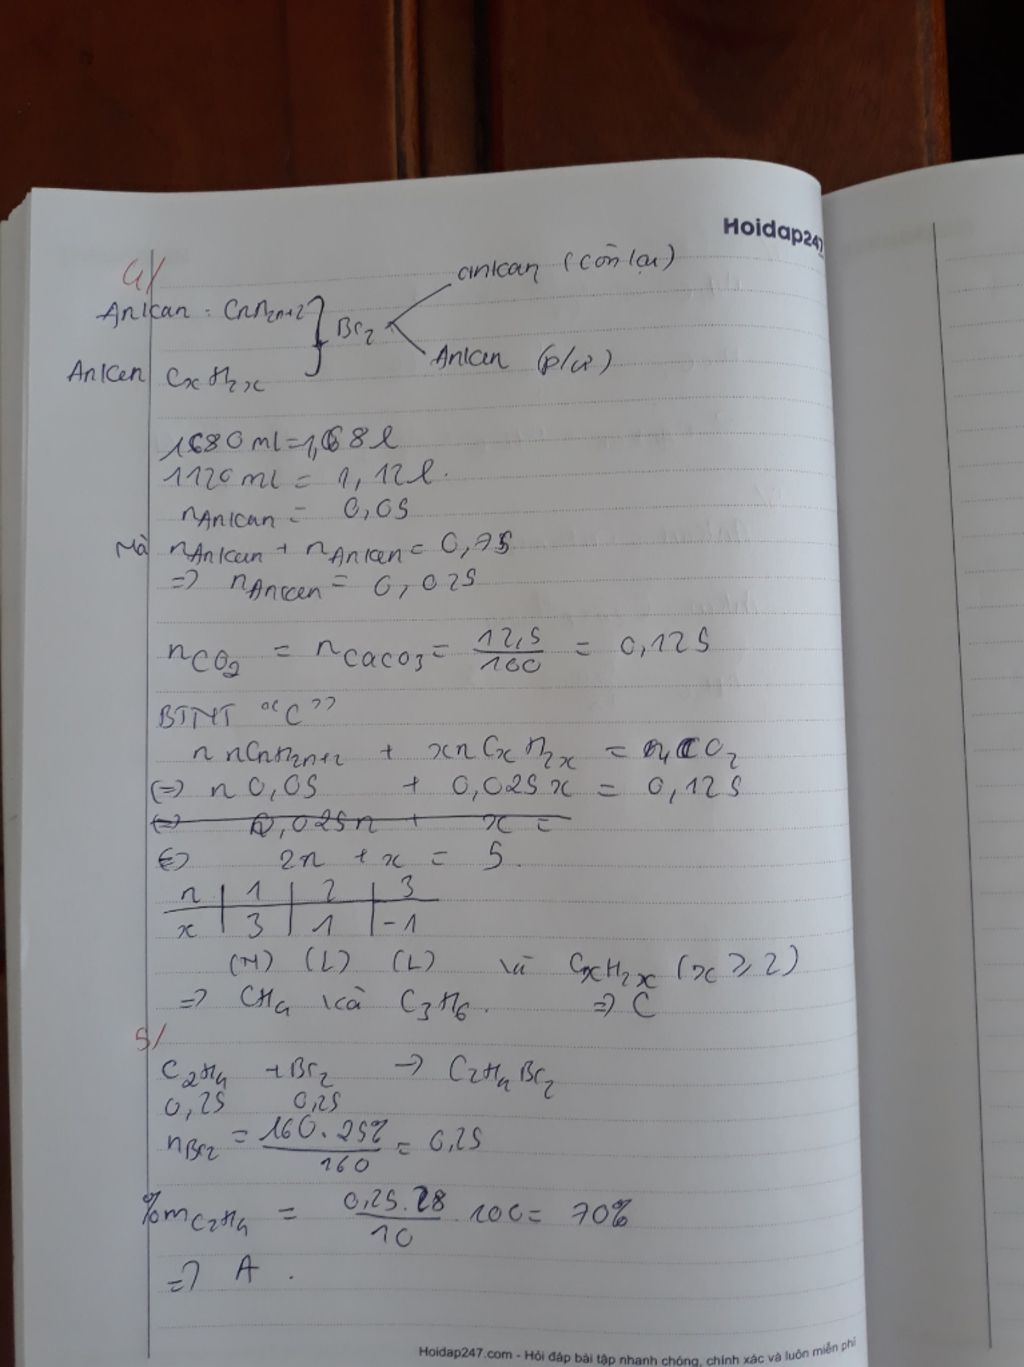 Hoidap247
4/
Ankan : CnH2n+2 } Br2 ankan (còn lại)
Anken CxH2x Anken (p/ứ)
1680 ml = 1,68 l
1120 ml = 1,12 l.
nAnkan = 0,05
Mà nAnkan + nAnken = 0,75
=> nAnken = 0,025
nCO2 = nCaCO3 = 12,5/100 = 0,125
BTNT "C"
n nCnH2n+2 + xnCxH2x = nCO2
(=) n 0,05 + 0,025 x = 0,125
(=) 0,025n + x =
(=) 2n + x = 5.
n | 1 | 2 | 3
x | 3 | 1 | -1
(N) (L) (L) vì CxH2x (x ≥ 2)
=> CH4 và C3H6. => C
5/
C2H4 + Br2 -> C2H4Br2
0,25 0,25
nBr2 = 160.25%/160 = 0,25
%mC2H4 = 0,25.28/10 .100 = 70%
=> A.
Hoidap247.com - Hỏi đáp bài tập nhanh chóng, chính xác và luôn miễn phí